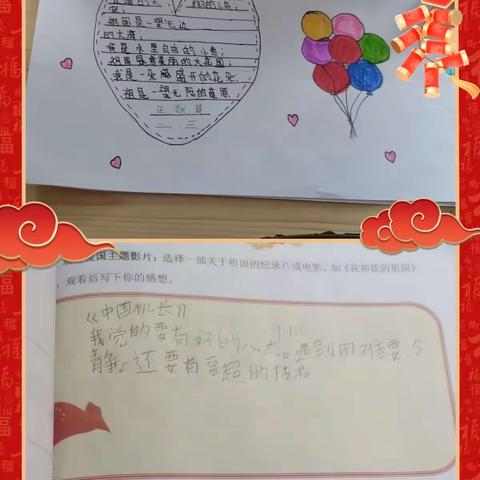 祖国是一望无边
的大海;
我是水里自由的小鱼;
祖国是最美丽的大花园;
我是一朵盛开的花朵;
祖国是一望无际的草原
二 三
国主题影片：选择一部关于祖国的纪录片或电影，如《我和我的祖国》
，观看后写下你的感想。
《中国机长》
我觉的要有好的心态。遇到困难要
静。还要有高超的技术。